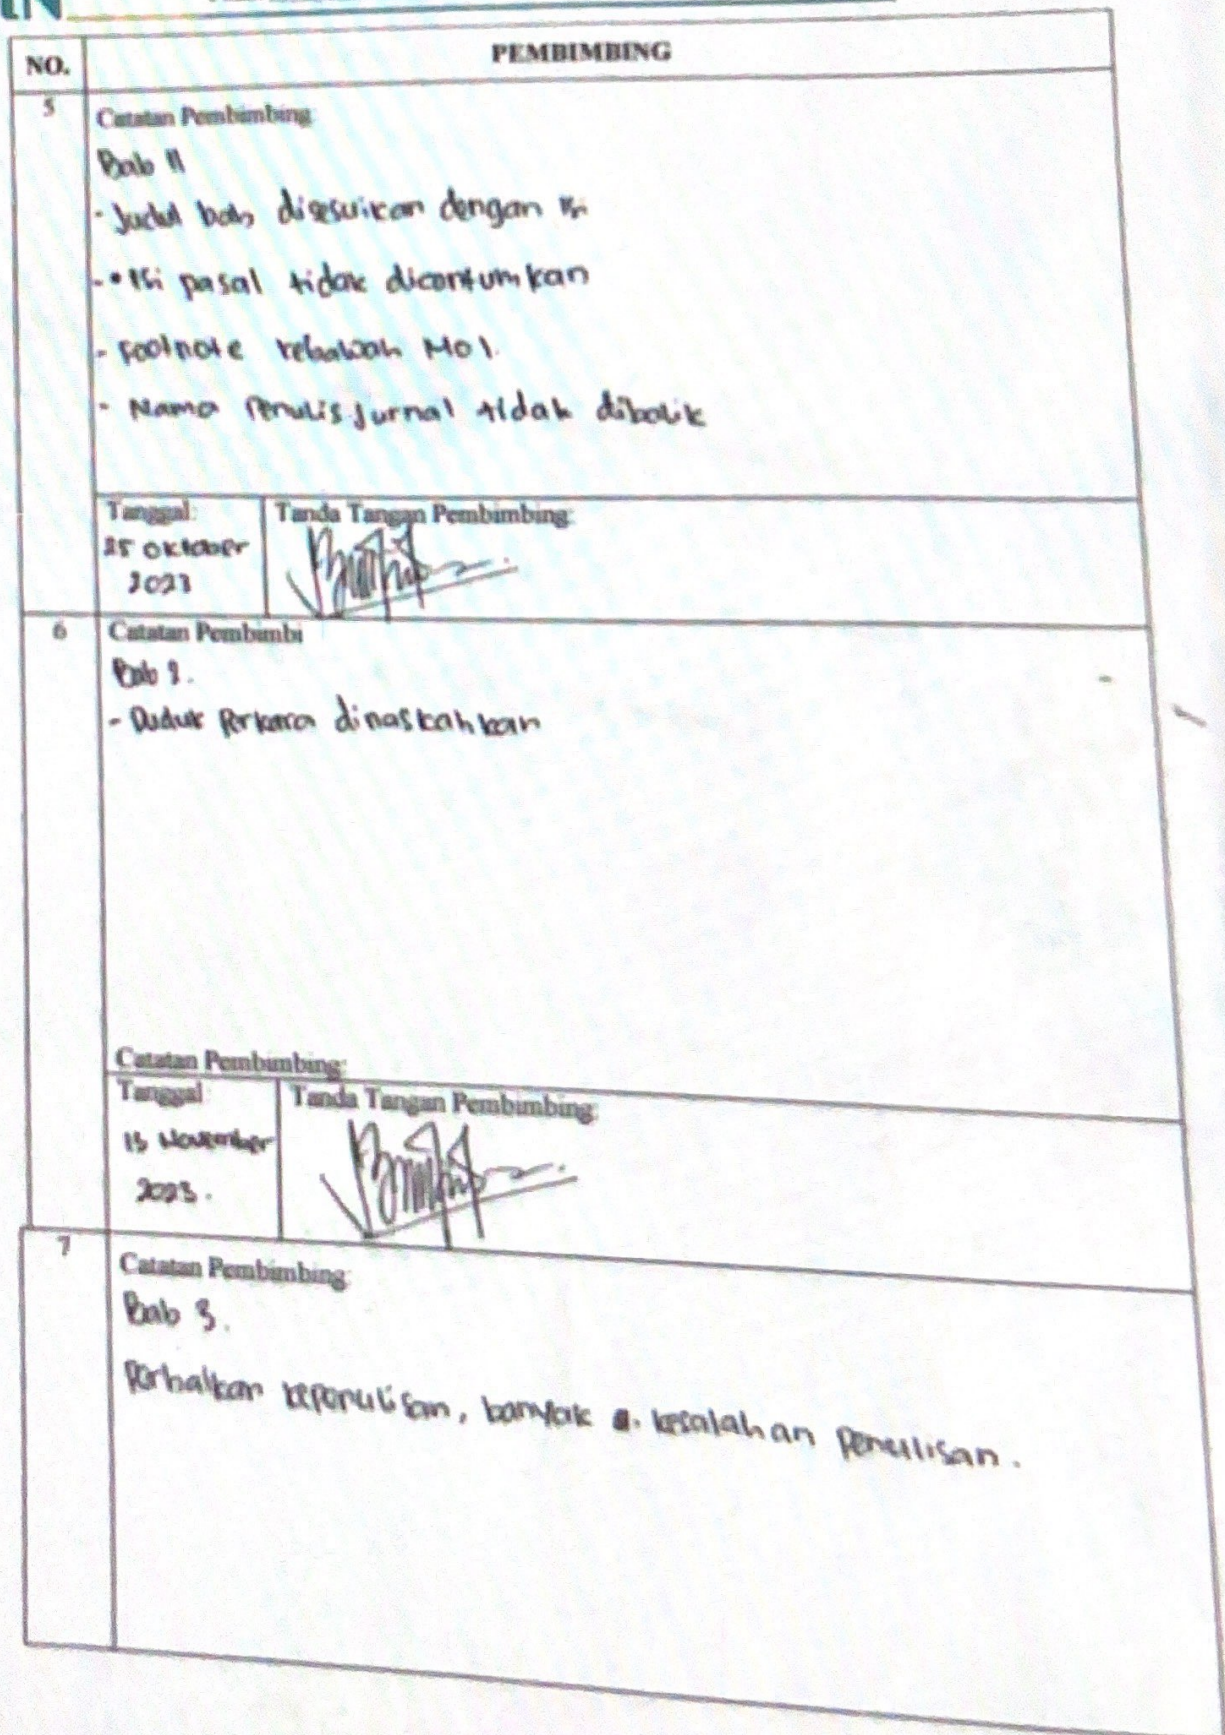 NO.
PEMBIMBING
5
Catatan Pembimbing:
Bab II
- Judul bab disesuikan dengan isi
- • Isi pasal tidak dicantumkan
- Footnote kebawah No 1.
- Nama Penulis jurnal tidak dibalik
Tanggal:
Tanda Tangan Pembimbing:
25 Oktober
2023
6
Catatan Pembimbi
Bab 2.
- Duduk Perkara dinaskahkan
Catatan Pembimbing:
Tanggal:
Tanda Tangan Pembimbing:
13 November
2023.
7
Catatan Pembimbing:
Bab 3.
Perhatikan kepenulisan, banyak kesalahan penulisan.